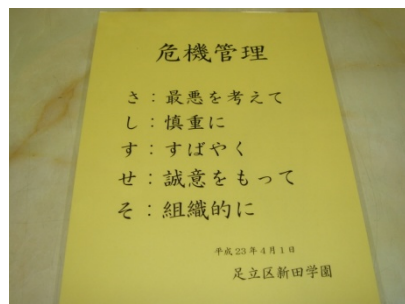 危機管理
さ：最悪を考えて
し：慎重に
す：すばやく
せ：誠意をもって
そ：組織的に
平成23年4月1日
足立区新田学園